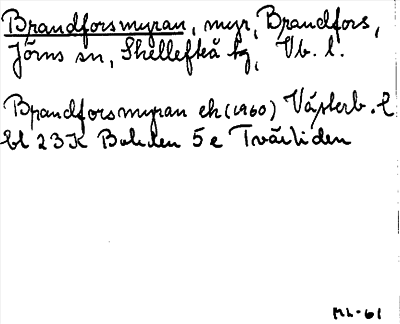 Brandforsmyran, myr, Brandfors,
Jörns sn, Skellefteå kg, Vb. l.
Brandforsmyran ek (1960) Västerb. l
bl 23K Boliden 5 e Tvärliden
ML-61